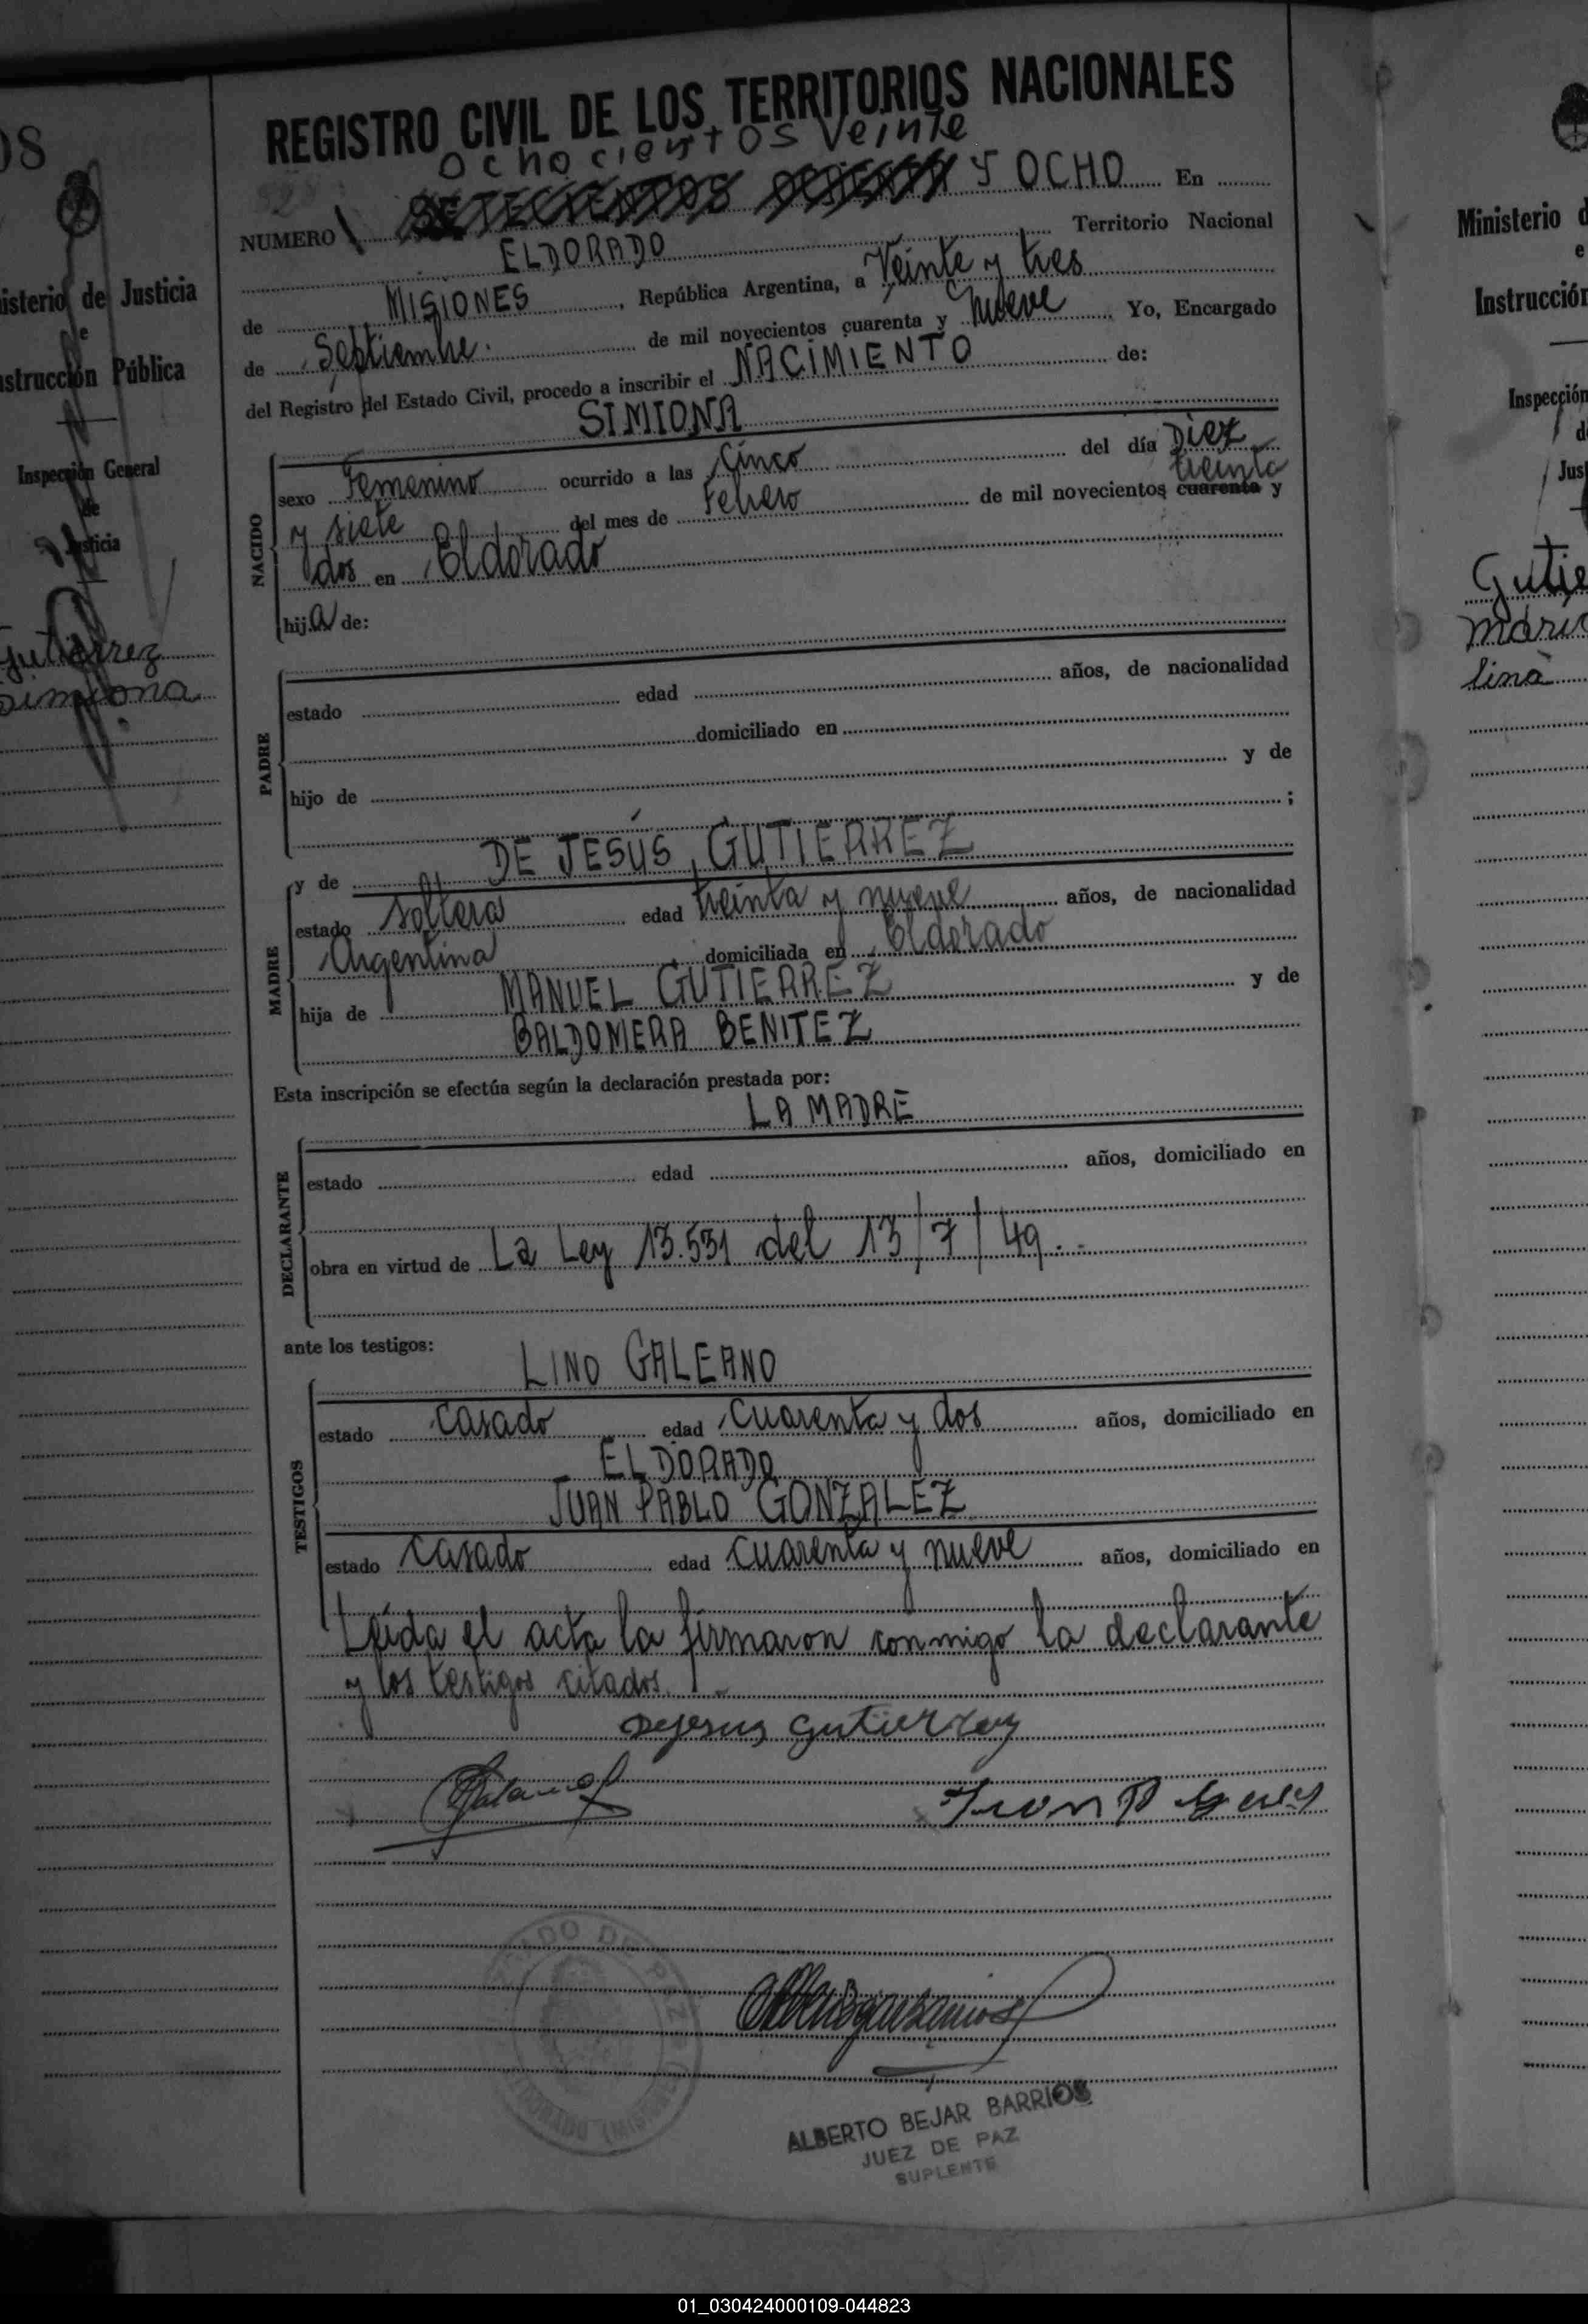 08
Ministerio de Justicia
e
Instrucción Pública
Inspección General
de
Justicia
Gutierrez
Simiona
REGISTRO CIVIL DE LOS TERRITORIOS NACIONALES
Ochocientos Veinte
NUMERO SETECIENTOS OCHENTA Y OCHO En
ELDORADO Territorio Nacional
de MISIONES, República Argentina, a Veinte y tres
de Septiembre. de mil novecientos cuarenta y nueve Yo, Encargado
del Registro del Estado Civil, procedo a inscribir el NACIMIENTO de:
SIMIONA
NACIDO
sexo Femenino ocurrido a las Cinco del día Diez
treinta
y siete del mes de Febrero de mil novecientos cuarenta y
dos en Eldorado
hija de:
PADRE
estado edad años, de nacionalidad
domiciliado en
hijo de y de
;
MADRE
y de DE JESÚS GUTIERREZ
estado soltera edad treinta y nueve años, de nacionalidad
Argentina domiciliada en Eldorado
hija de MANUEL GUTIERREZ y de
BALDOMERA BENITEZ
Esta inscripción se efectúa según la declaración prestada por:
LA MADRE
DECLARANTE
estado edad años, domiciliado en
obra en virtud de La Ley 13.531 del 13/7/49..
ante los testigos:
LINO GALEANO
TESTIGOS
estado Casado edad Cuarenta y dos años, domiciliado en
ELDORADO
JUAN PABLO GONZALEZ
estado Casado edad Cuarenta y nueve años, domiciliado en
Leída el acta la firmaron conmigo la declarante
y los testigos citados.
Dejesus Gutierrez
ALBERTO BEJAR BARRIOS
JUEZ DE PAZ
SUPLENTE
Ministerio d
e
Instrucción
Inspección
d
Jus
Gutie
maric
lina
01_030424000109-044823